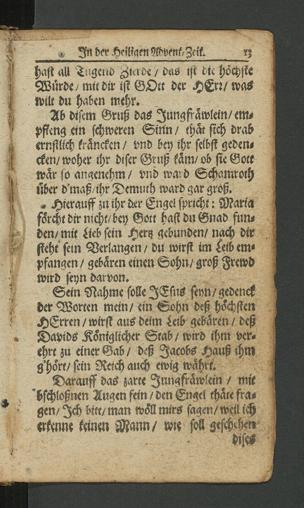 In der Heiligen Advent-Zeit. 13
hast all Tugend Zierde / das ist die höchste
Würde / mit dir ist GOtt der HErr / was
wilt du haben mehr.
Ab disem Gruß das Jungfräwlein / em-
pfieng ein schweren Sinn / thät sich drab
ernstlich kräncken / vnd bey ihr selbst geden-
cken / woher ihr diser Gruß käm / ob sie Gott
wär so angenehm / vnd ward Schamroth
über d'maß / ihr Demuth ward gar groß.
Hierauff zu ihr der Engel spricht: Maria
förcht dir nicht / bey Gott hast du Gnad fun-
den / mit Lieb sein Hertz gebunden / nach dir
steht sein Verlangen / du wirst im Leib em-
pfangen / gebären einen Sohn / groß Frewd
wird seyn darvon.
Sein Nahme solle JEsus seyn / gedenck
der Worten mein / ein Sohn deß höchsten
HErren / wirst aus deim Leib gebären / deß
Davids Königlicher Stab / wird ihm ver-
ehrt zu einer Gab / deß Jacobs Hauß ihm
g'hört / sein Reich auch ewig währt.
Darauff das zarte Jungfräwlein / mit
bschloßnen Augen fein / den Engel thäte fra-
gen / Ich bitt / man wöll mirs sagen / weil ich
erkenne keinen Mann / wie soll geschehen
dises